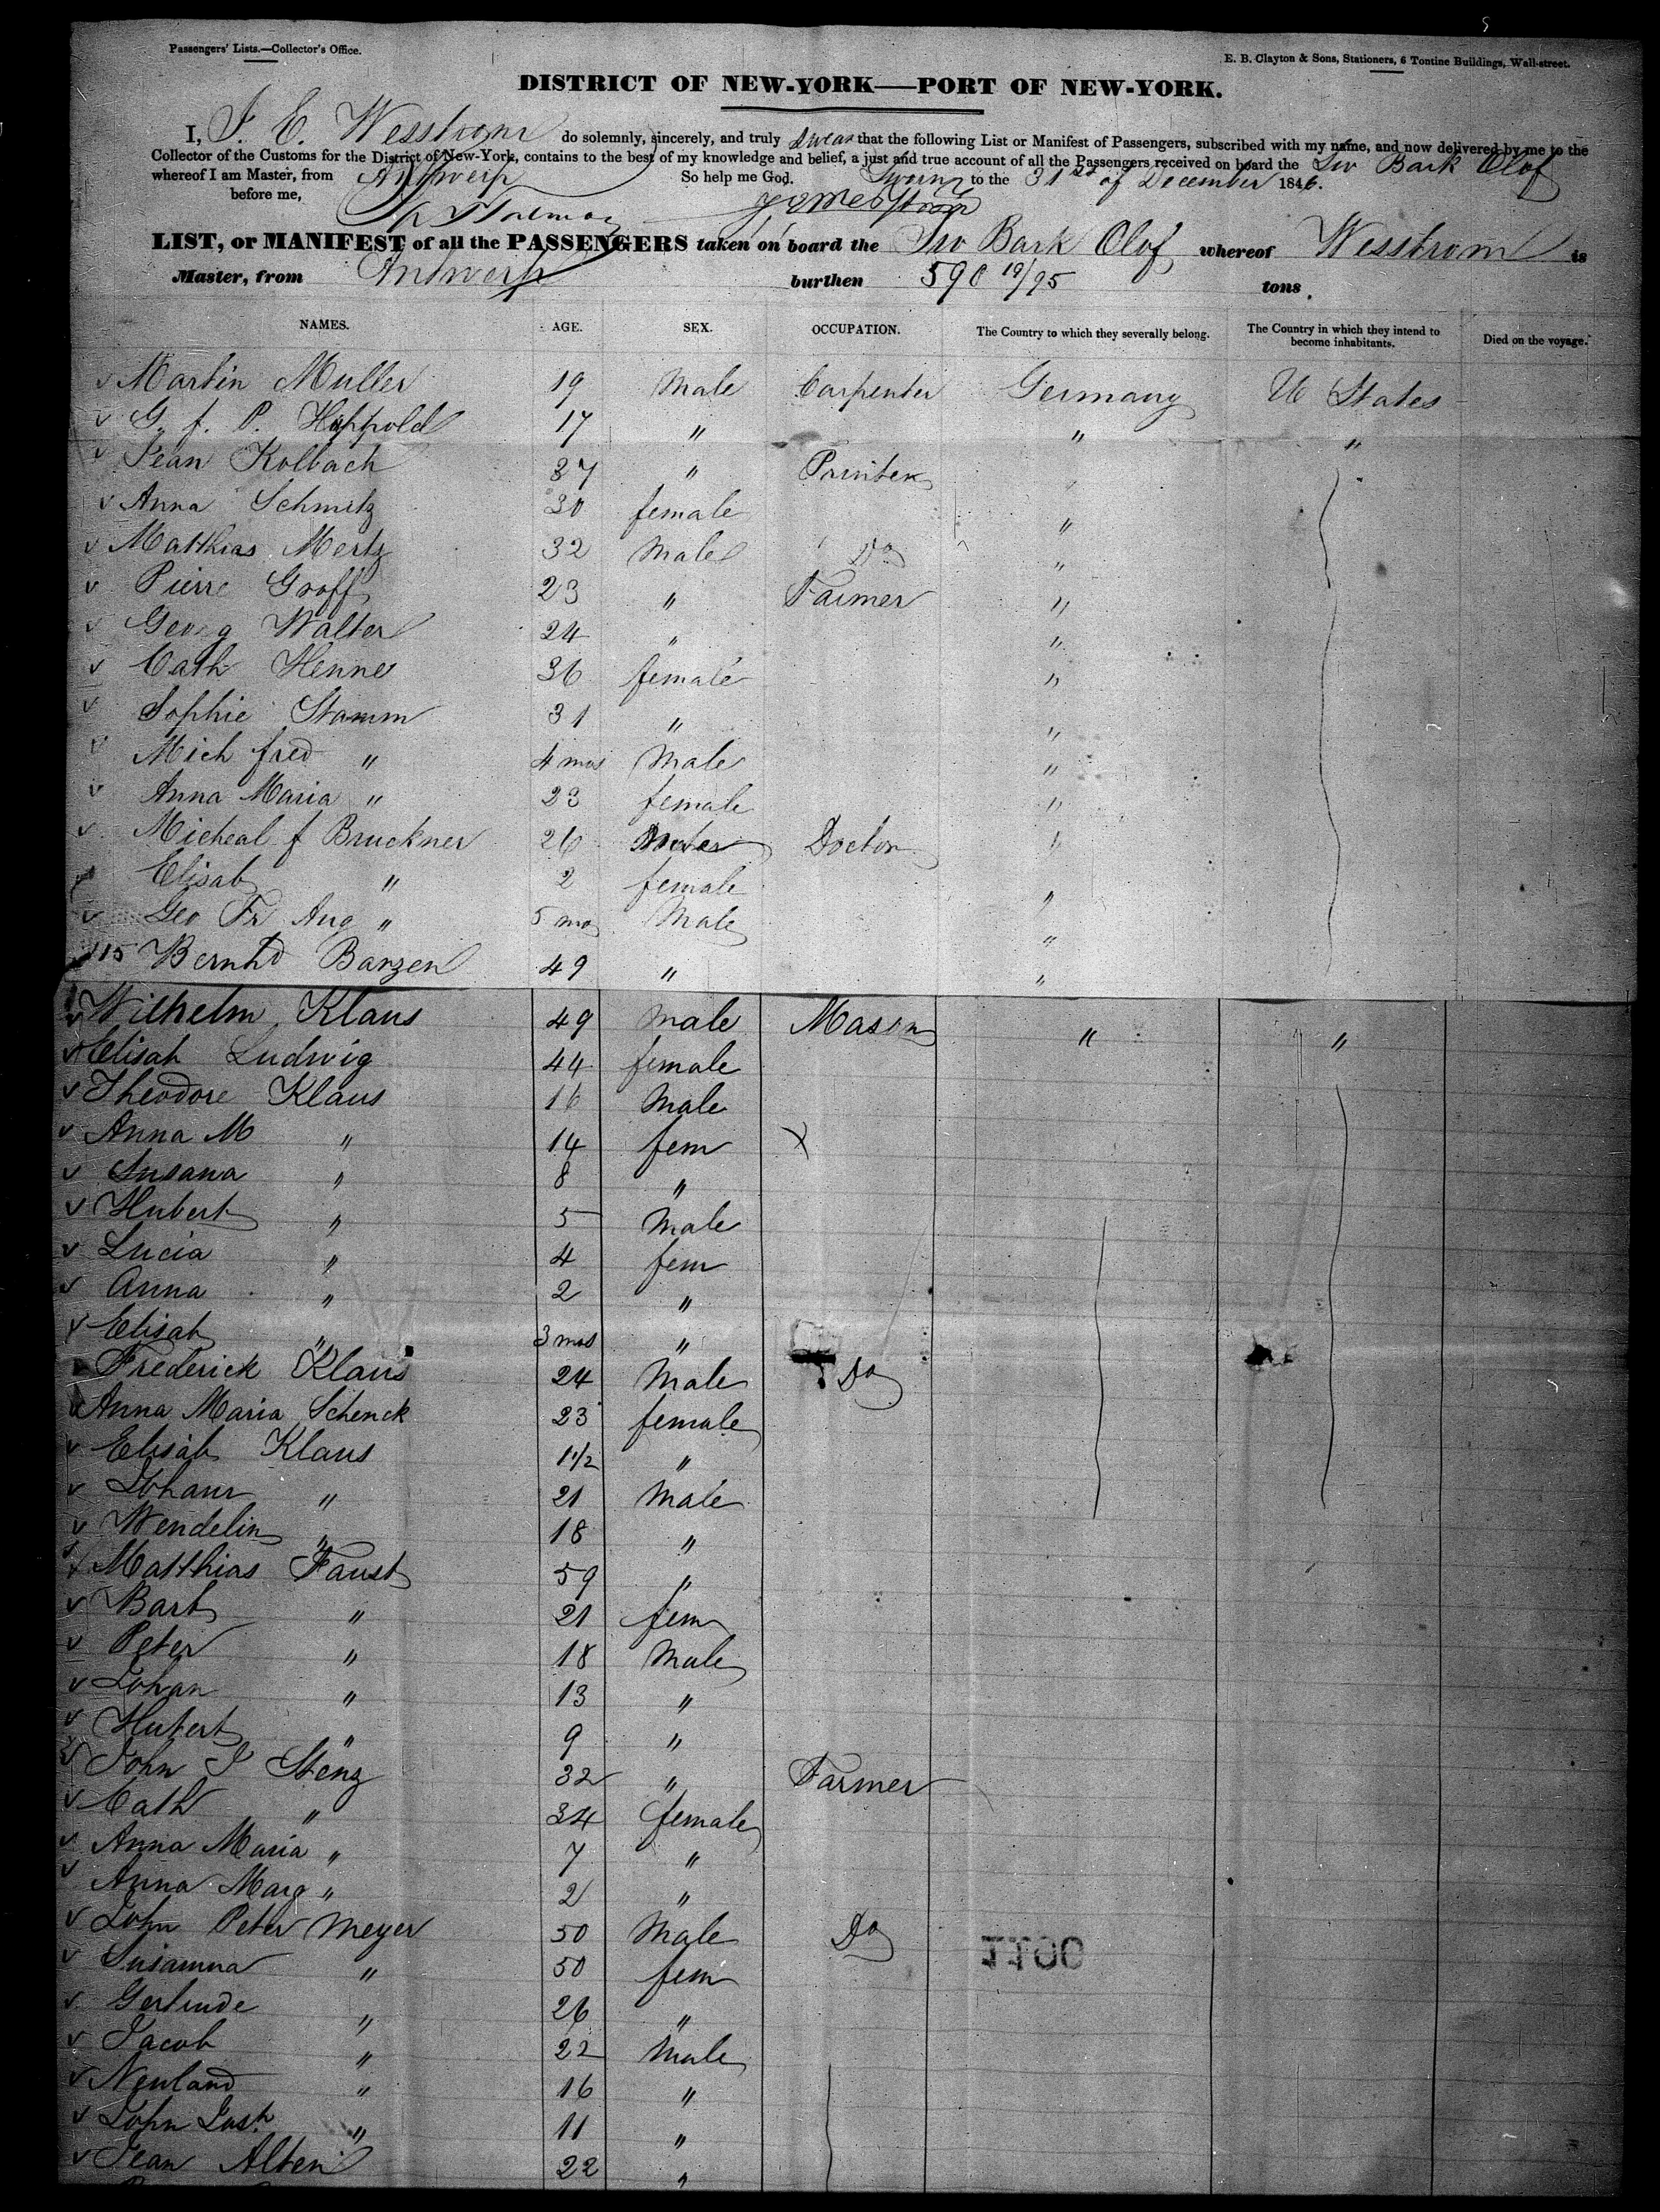 Passengers' Lists.—Collector's Office.
E. B. Clayton & Sons, Stationers, 6 Tontine Buildings, Wall-street.
DISTRICT OF NEW-YORK—PORT OF NEW-YORK.
I, J. E. Wesstrom do solemnly, sincerely, and truly swear that the following List or Manifest of Passengers, subscribed with my name, and now delivered by me to the
Collector of the Customs for the District of New-York, contains to the best of my knowledge and belief, a just and true account of all the Passengers received on board the Sw Bark Olof
whereof I am Master, from Antwerp So help me God. Sworn to the 31st of December 1846.
before me,
LIST, or MANIFEST of all the PASSENGERS taken on board the Sw Bark Olof whereof Wesstrom is
Master, from Antwerp burthen 590 19/95 tons.
NAMES. AGE. SEX. OCCUPATION. The Country to which they severally belong. The Country in which they intend to become inhabitants. Died on the voyage.
Martin Muller 19 Male Carpenter Germany U States
G. f. P. Hippold 17 " " "
Jean Kolbach 37 " Printer "
Anna Schmitz 30 female "
Matthias Mertz 32 Male Do "
Pierre Groff 23 " Farmer "
Georg Walter 24 " "
Cath Henne 36 female "
Sophie Stamm 31 " "
Mich fred " 4 mos Male "
Anna Maria " 23 female "
Micheal f Bruckner 26 Doctor "
Elisab " 2 female "
Geo Fr Aug " 5 mo Male "
15 Bernhd Barzen 49 " "
Wilhelm Klaus 49 Male Mason " "
Elisab Ludwig 44 female
Theodore Klaus 16 Male
Anna M " 14 fem X
Susana " 8 "
Hubert " 5 Male
Lucia " 4 fem
Anna " 2 "
Elisab " 3 mos "
Frederick Klaus 24 Male Do
Anna Maria Schenck 23 female
Elisab Klaus 1 1/2 "
Johann " 21 Male
Wendelin " 18 "
Matthias Faust 59 "
Barb " 21 fem
Peter " 18 Male
Johan " 13 "
Hubert " 9 "
John J Stenz 32 " Farmer
Cath " 34 female
Anna Maria " 7 "
Anna Marg " 2 "
John Peter Meyer 50 Male Do
1100
Susanna " 50 fem
Gertrude " 26 "
Jacob " 22 Male
Neuland " 16 "
John Josh " 11 "
Jean Alten 22 "